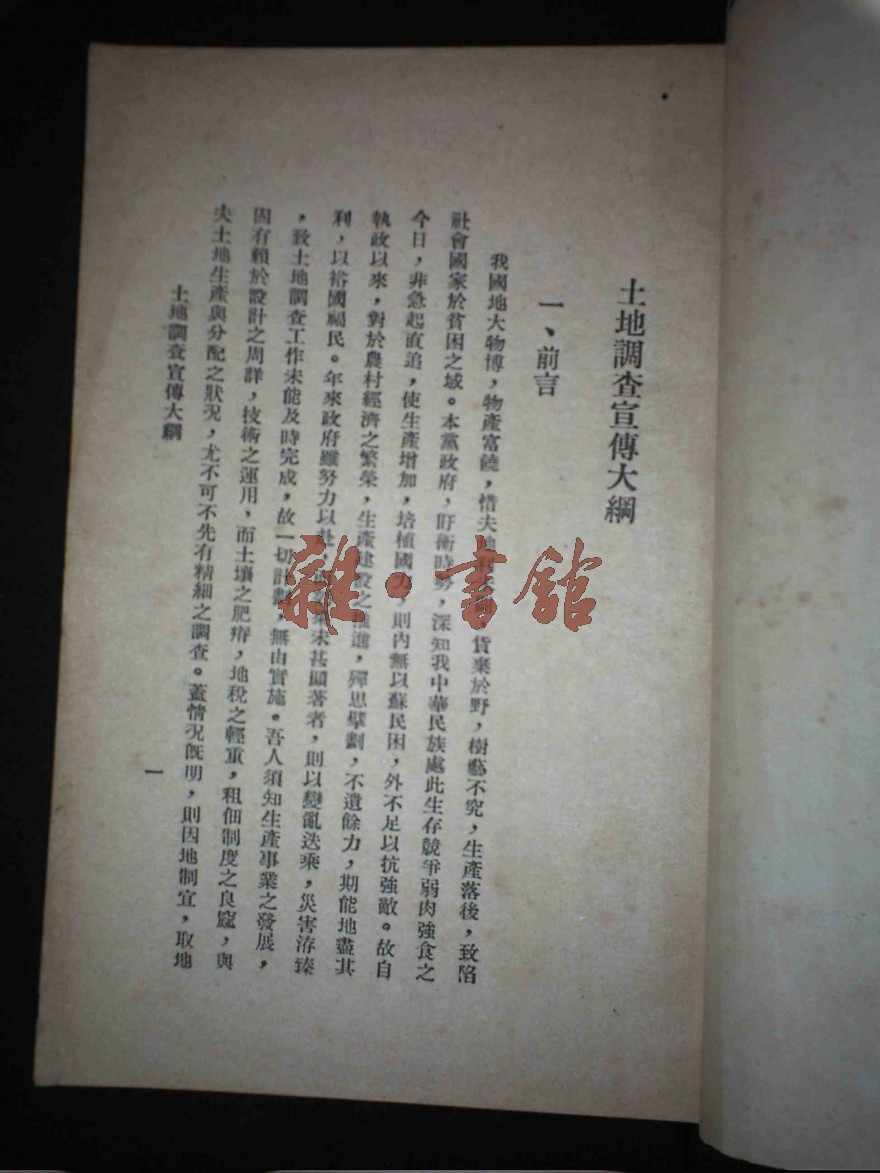 土地調查宣傳大綱
一、前言
我國地大物博，物產富饒，惜夫地 貨棄於野，樹藝不究，生產落後，致陷
社會國家於貧困之域。本黨政府，盱衡時勢，深知我中華民族處此生存競爭弱肉強食之
今日，非急起直追，使生產增加，培植國力，則內無以蘇民困，外不足以抗強敵。故自
執政以來，對於農村經濟之繁榮，生產建設之推進，殫思擘劃，不遺餘力，期能地盡其
利，以裕國福民。年來政府雖努力以赴， 未甚顯著者，則以變亂迭乘，災害洊臻
，致土地調查工作未能及時完成，故一切計劃，無由實施。吾人須知生產事業之發展，
固有賴於設計之周詳，技術之運用，而土壤之肥瘠，地稅之輕重，租佃制度之良窳，與
夫土地生產與分配之狀況，尤不可不先有精細之調查。蓋情況既明，則因地制宜，取地
土地調查宣傳大綱
一
雜·書館